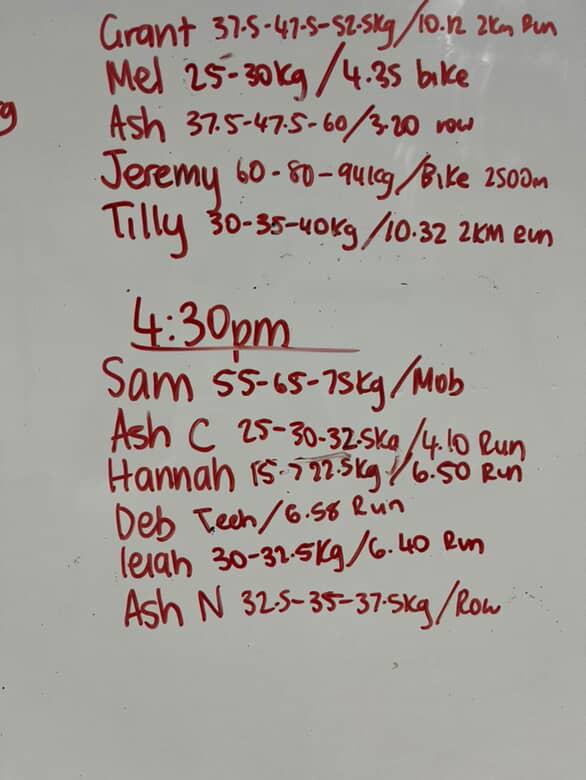 Grant 37.5-47.5-52.5kg/10.12 2km Run
Mel 25-30kg/4.35 bike
g
Ash 37.5-47.5-60/3.20 row
Jeremy 60-80-94kg/Bike 2500m
Tilly 30-35-40kg/10.32 2KM run
4:30pm
Sam 55-65-75kg/Mob
Ash C 25-30-32.5kg/4.10 Run
Hannah 15-22.5kg/6.50 Run
Deb Tech/6.58 Run
leiah 30-32.5kg/6.40 Run
Ash N 32.5-35-37.5kg/Row